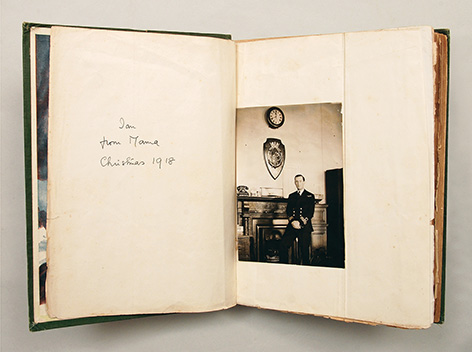 Ian
from Mama
Christmas 1918